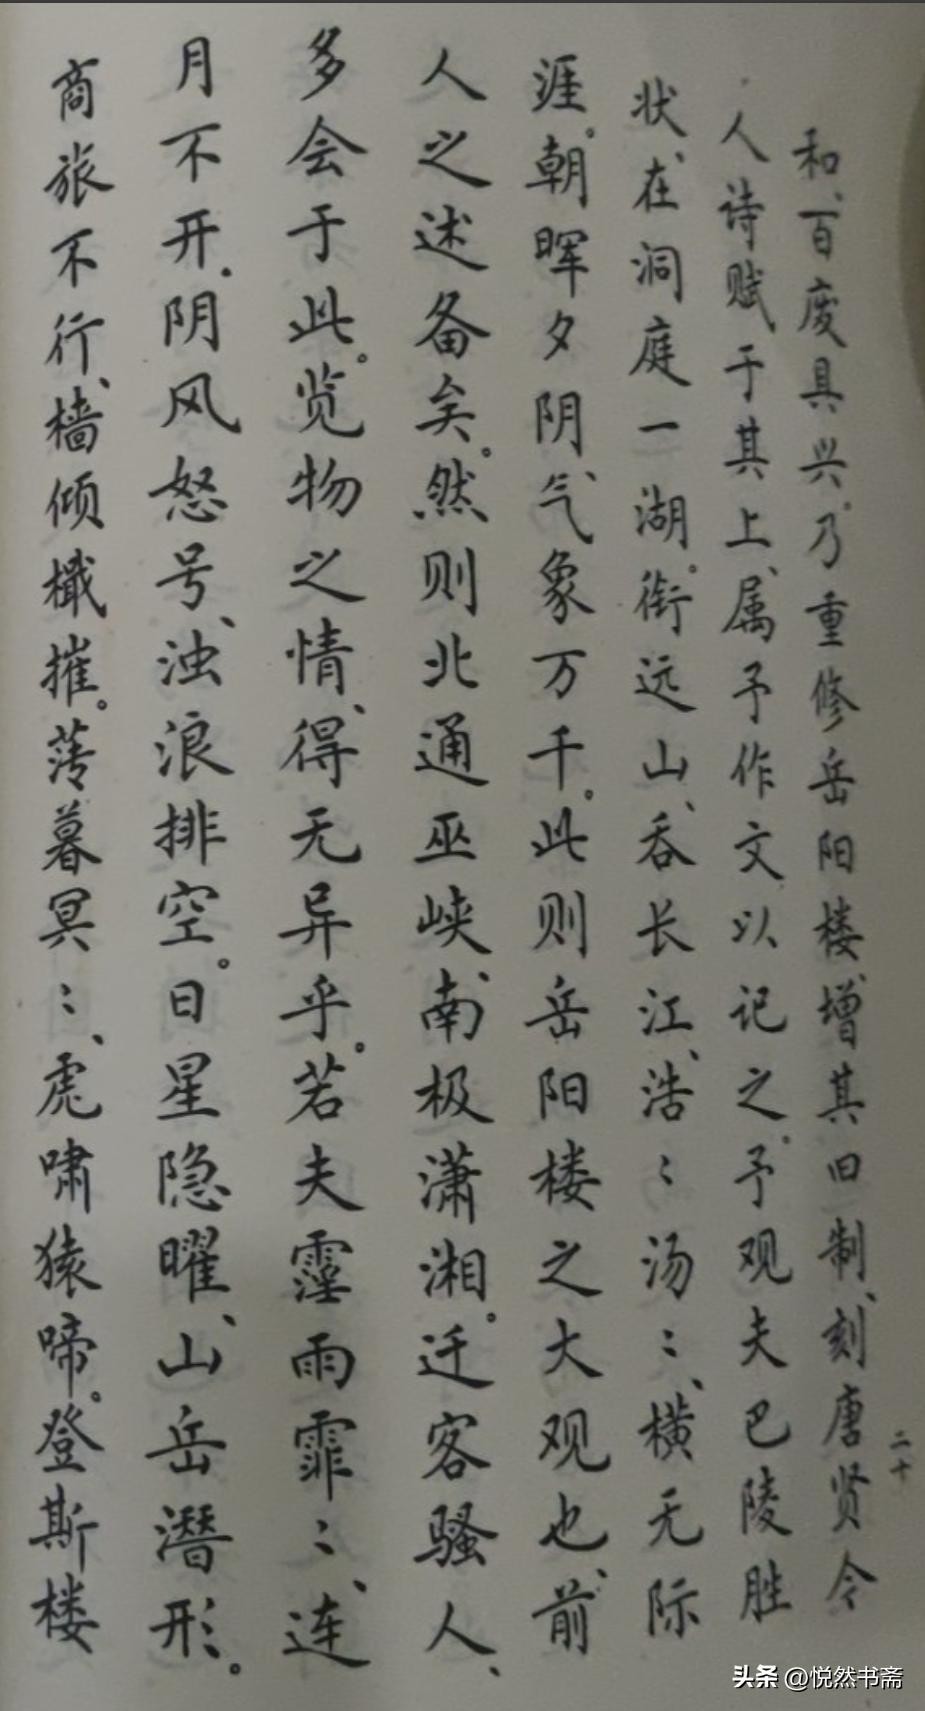 和、百废具兴。乃重修岳阳楼、增其旧制、刻唐贤今
人诗赋于其上、属予作文以记之。予观夫巴陵胜
状、在洞庭一湖。衔远山、吞长江、浩〻汤〻、横无际
涯。朝晖夕阴、气象万千。此则岳阳楼之大观也、前
人之述备矣。然则北通巫峡、南极潇湘。迁客骚人、
多会于此。览物之情、得无异乎。若夫霪雨霏〻、连
月不开。阴风怒号、浊浪排空。日星隐曜、山岳潜形。
商旅不行、樯倾檝摧。薄暮冥〻、虎啸猿啼。登斯楼
二十
头条 @悦然书斋